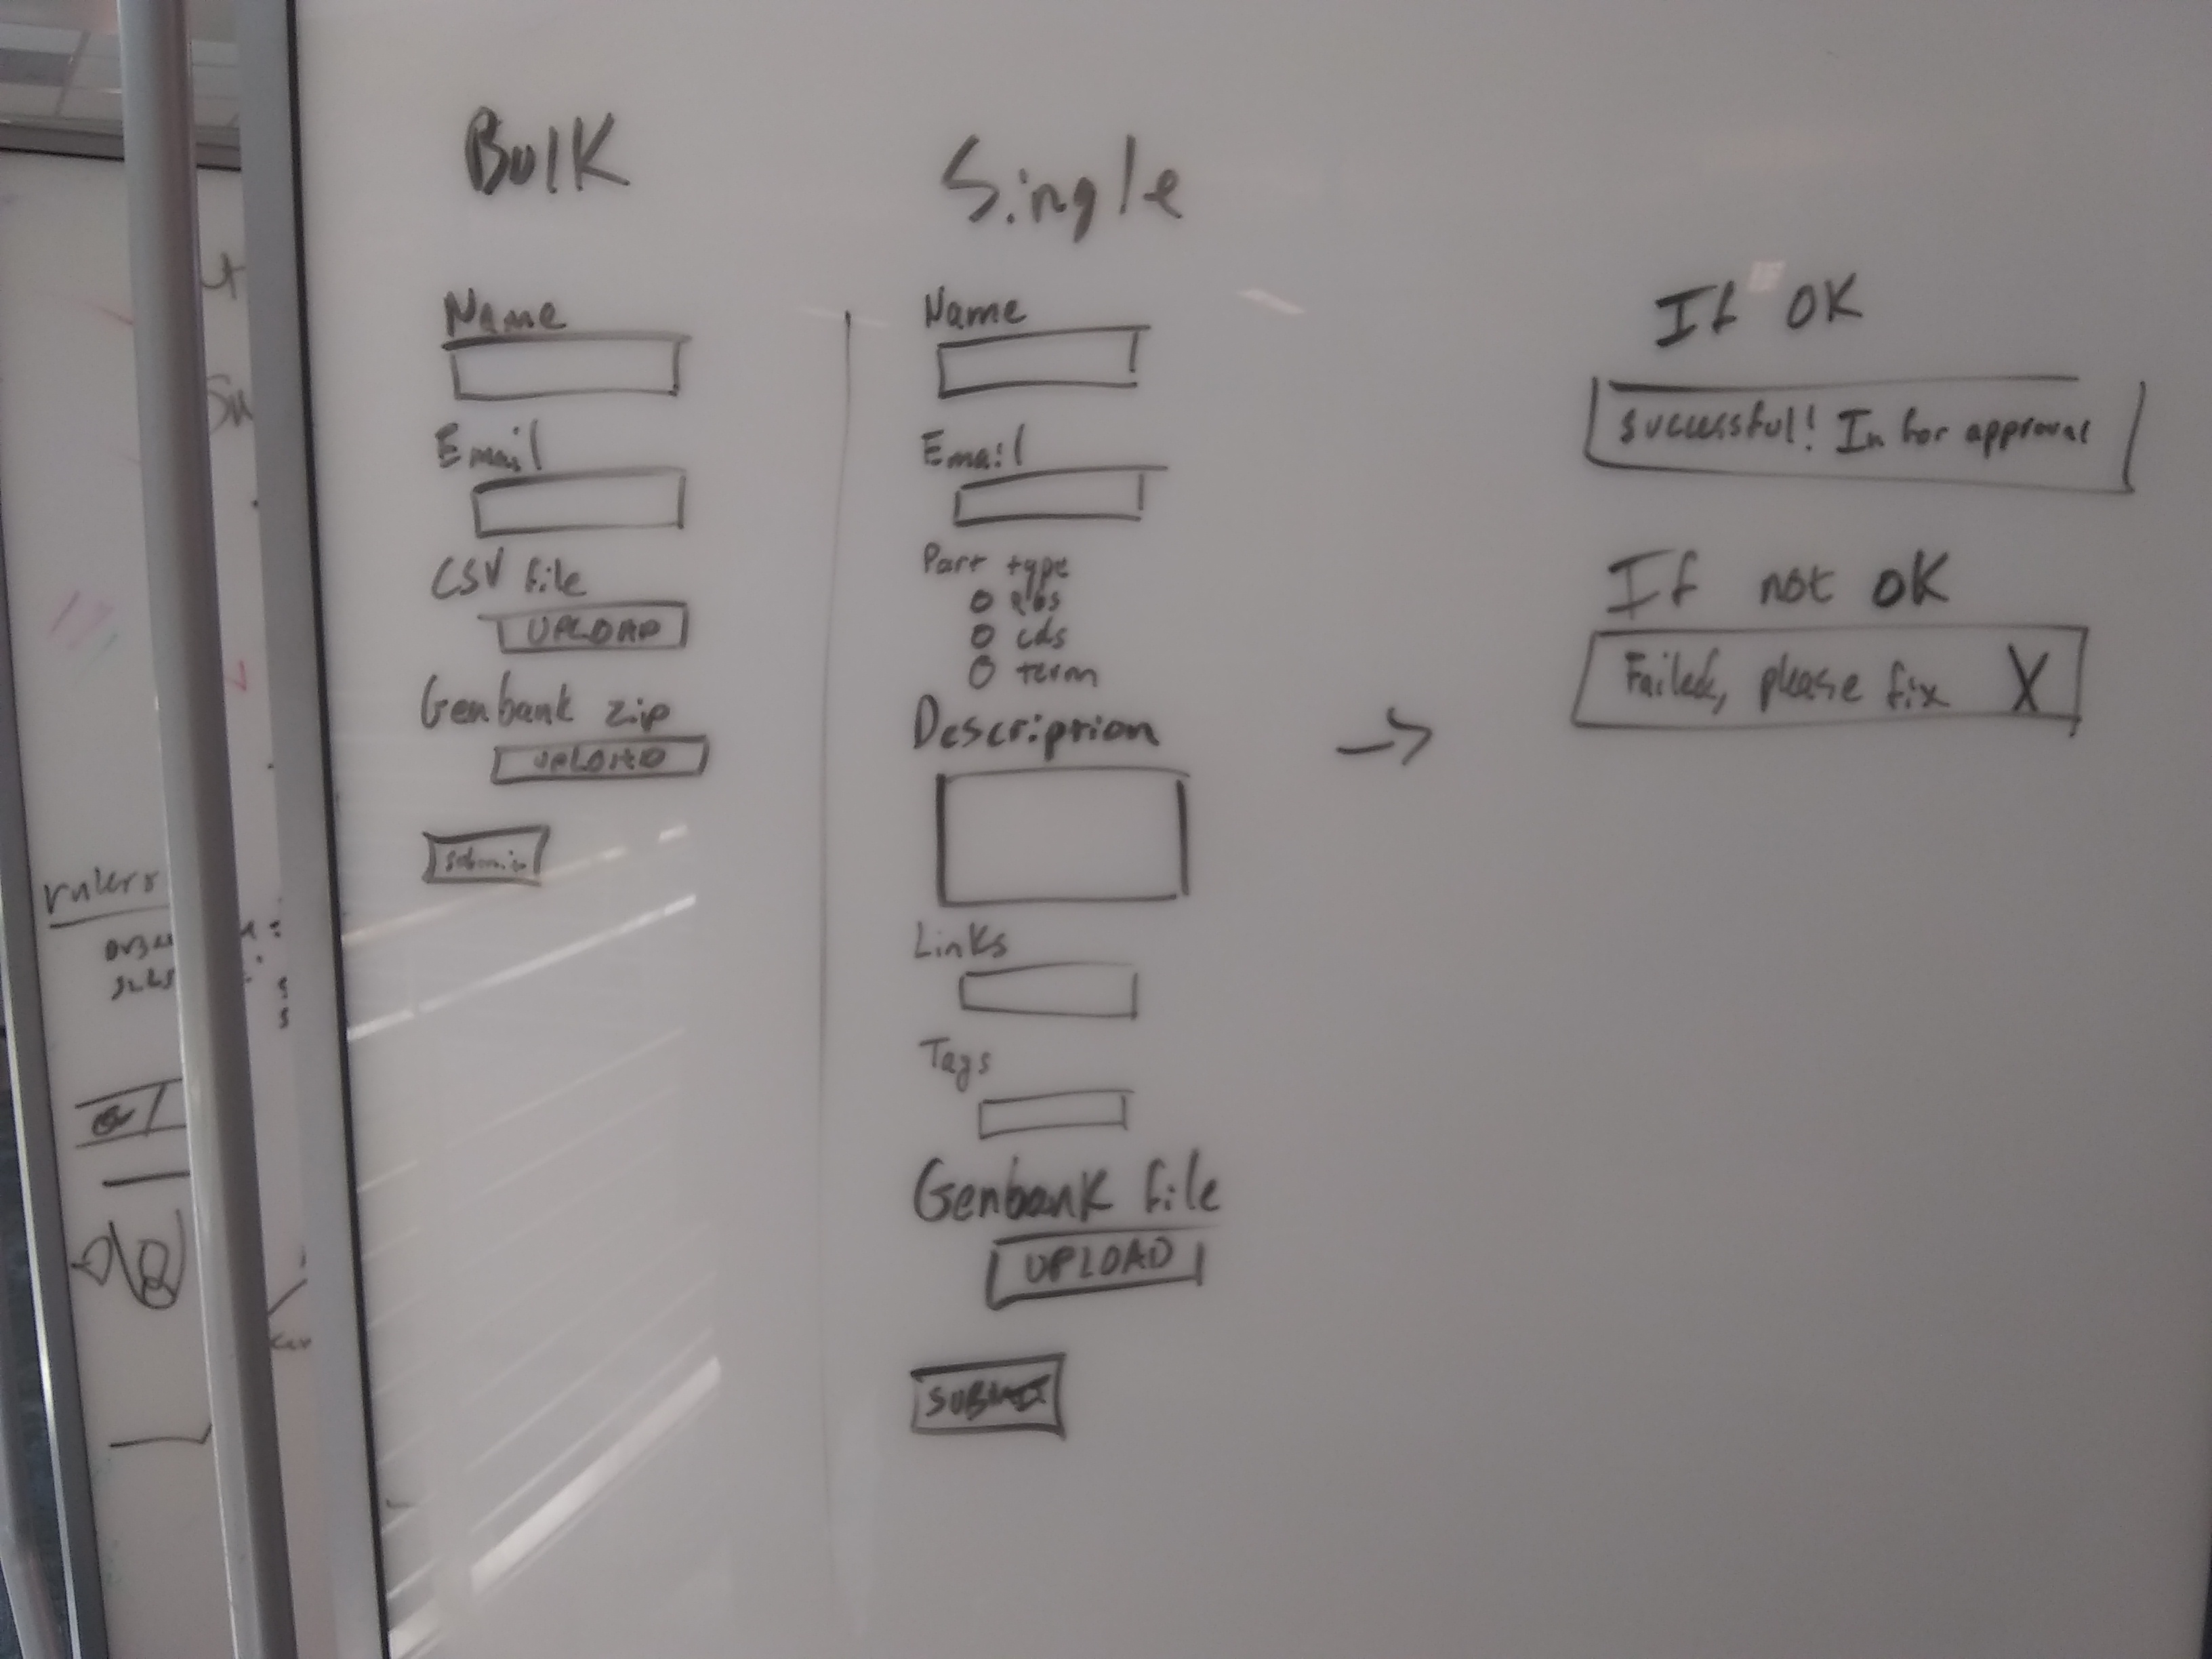 Bulk
Name
Email
CSV file
UPLOAD
Genbank zip
UPLOAD
submit
Single
Name
Email
Part type
rbs
cds
term
Description
Links
Tags
Genbank file
UPLOAD
SUBMIT
If OK
successful! In for approval
If not OK
Failed, please fix X
rulers